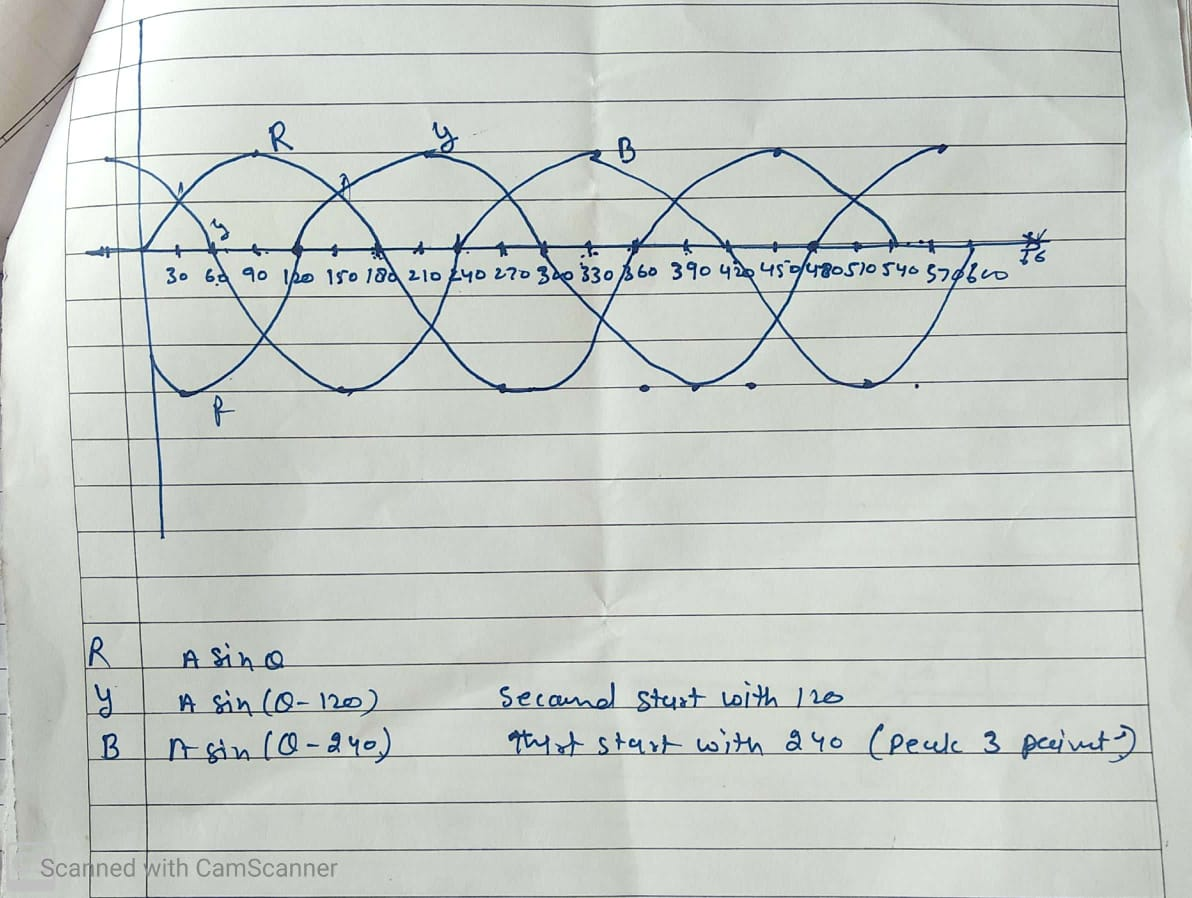 R y B
y
30 60 90 120 150 180 210 240 270 300 330 360 390 420 450 480 510 540 570 600
R A sin θ
y A sin (θ-120) Secound start with 120
B A sin (θ-240) start with 240 (peak 3
Scanned with CamScanner